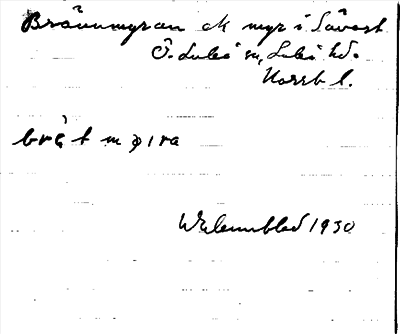 Brännmyran ak myr i Sävast
Ö. Luleå sn, Luleå hd.
Norrb l.
W Elenmblad 1930